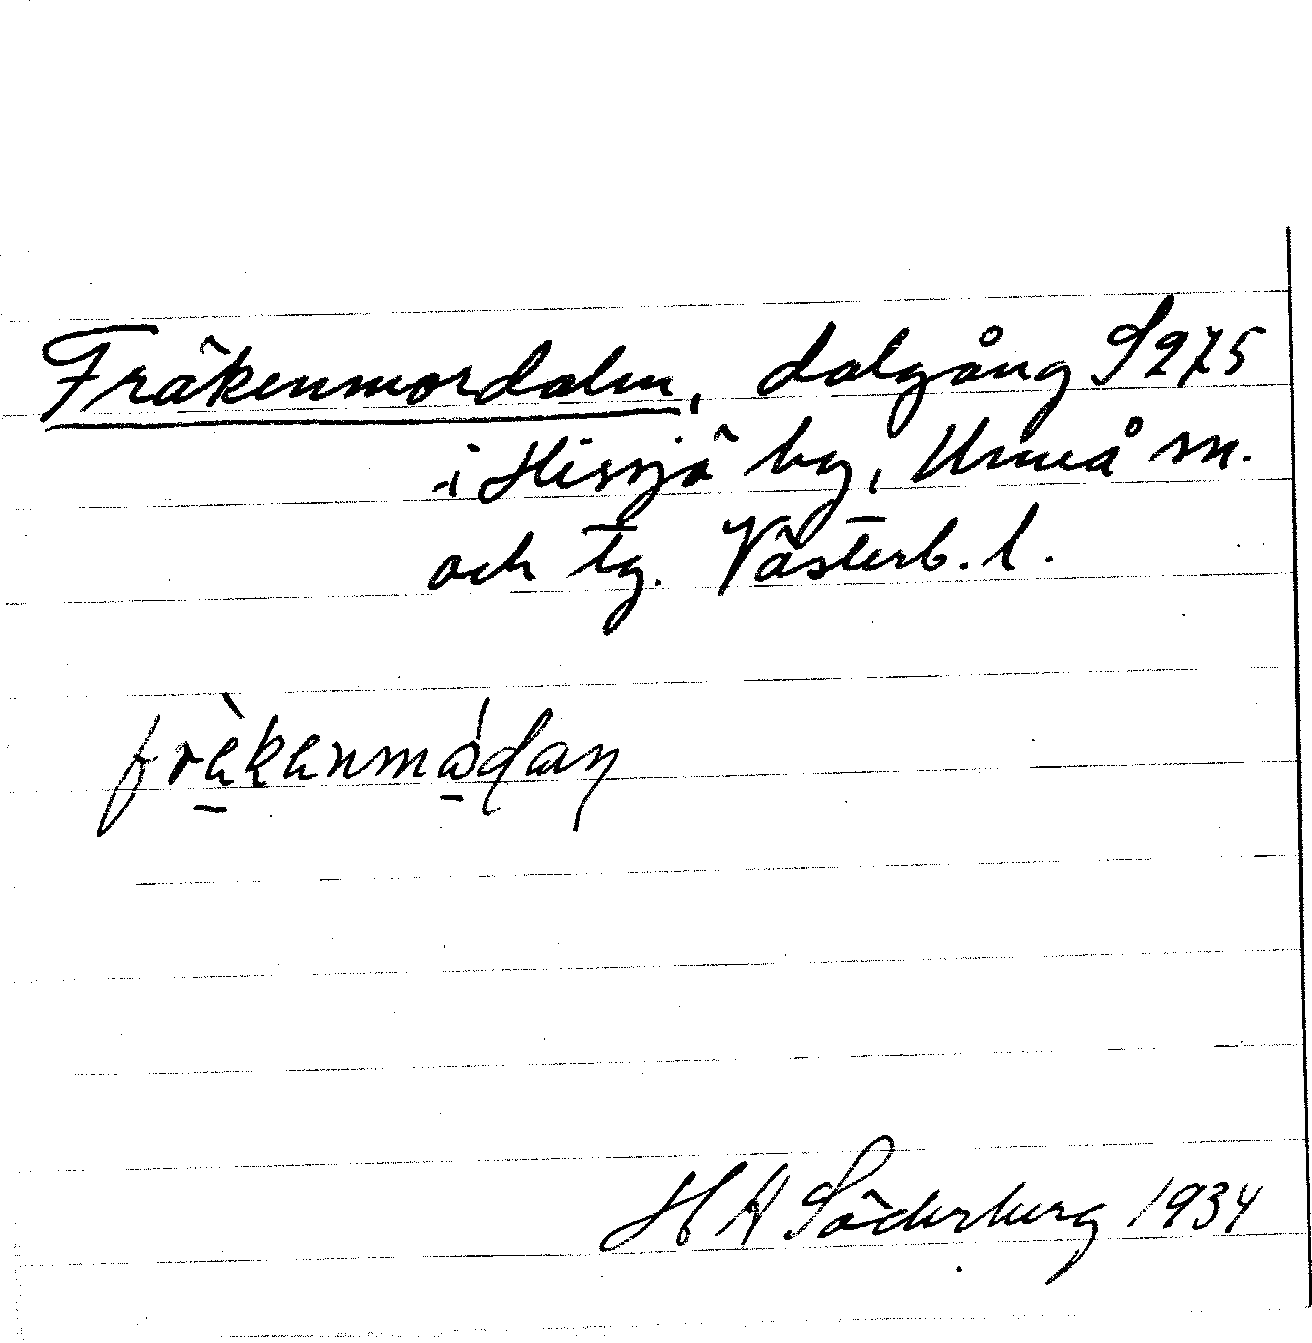 Fräkenmordalen, dalgång S275
i Hissjö by, Umeå sn.
och tg. Västerb. l.
H H Söderberg 1934